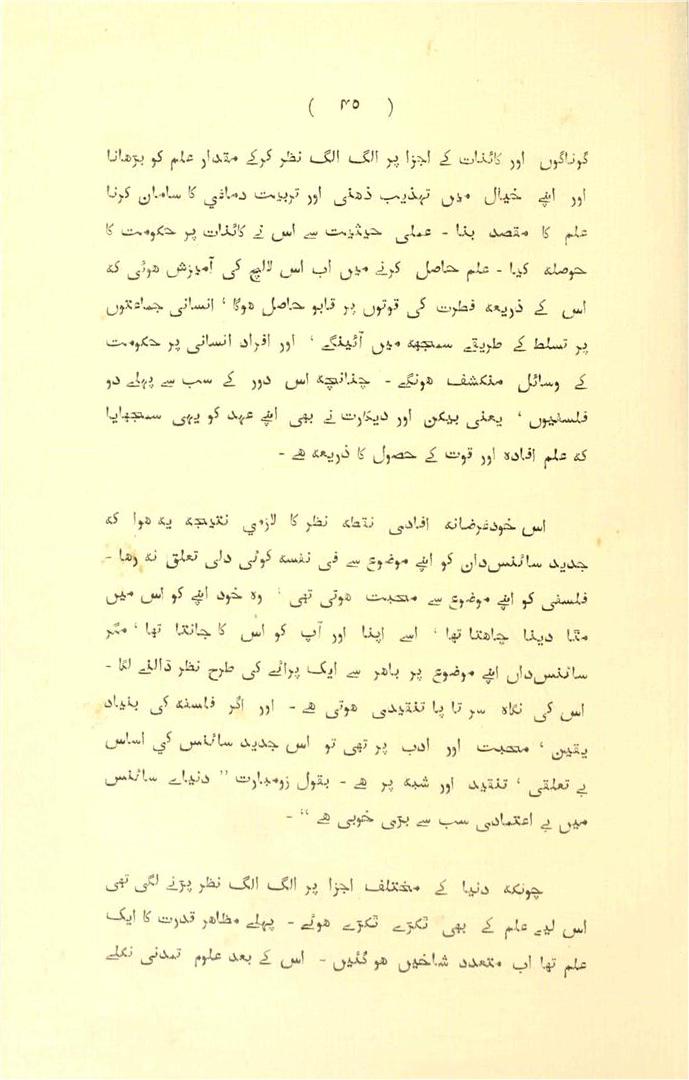 ( ۴۵ )
گوناگوں اور کائنات کے اجزا پر الگ الگ نظر کرکے مقدار علم کو بڑھانا
اور اپنے خیال میں تہذیب ذهنی اور تربیت دماغی کا سامان کرنا
علم کا مقصد بنا - عملی حیثیت سے اس نے کائنات پر حکومت کا
حوصله کیا - علم حاصل کرنے میں اب اس لالچ کی آمیزش هوئی که
اس کے ذریعه فطرت کی قوتوں پر قابو حاصل هوگا ' انسانی جماعتوں
پر تسلط کے طریقے سمجهه میں آئینگے ' اور افراد انسانی پر حکومت
کے وسائل منکشف هونگے - چنانچه اس دور کے سب سے پہلے دو
فلسفیوں ' یعنی بیکن اور دیکارت نے بھی اپنے عہد کو یہی سمجهایا
که علم افاده اور قوت کے حصول کا ذریعه هے -
اس خودغرضانه افادی نقطه نظر کا لازمی نتیجه یه هوا که
جدید سائنس‌دان کو اپنے موضوع سے فی نفسه کوئی دلی تعلق نه رها -
فلسفی کو اپنے موضوع سے محبت هوتی تھی ' وه خود اپنے کو اس میں
مٹا دینا چاهتا تھا ' اسے اپنا اور آپ کو اس کا جانتا تھا ' مگر
سائنس‌داں اپنے موضوع پر باهر سے ایک پرائے کی طرح نظر ڈالنے لگا -
اس کی نگاه سر تا پا تنقیدی هوتی هے - اور اگر فلسفه کی بنیاد
یقین ' محبت اور ادب پر تھی تو اس جدید سائنس کی اساس
بے تعلقی ' تنقید اور شبه پر هے - بقول زومبارت " دنیاے سائنس
میں بے اعتمادی سب سے بڑی خوبی هے " -
چونکه دنیا کے مختلف اجزا پر الگ الگ نظر پڑنے لگی تھی
اس لیے علم کے بھی ٹکڑے ٹکڑے هوئے - پہلے مظاهر قدرت کا ایک
علم تھا اب متعدد شاخیں هو گئیں - اس کے بعد علوم تمدنی نکلے